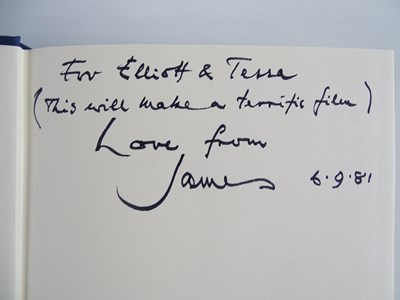 For Elliott & Tessa
(This will make a terrific film)
Love from
James 6.9.81